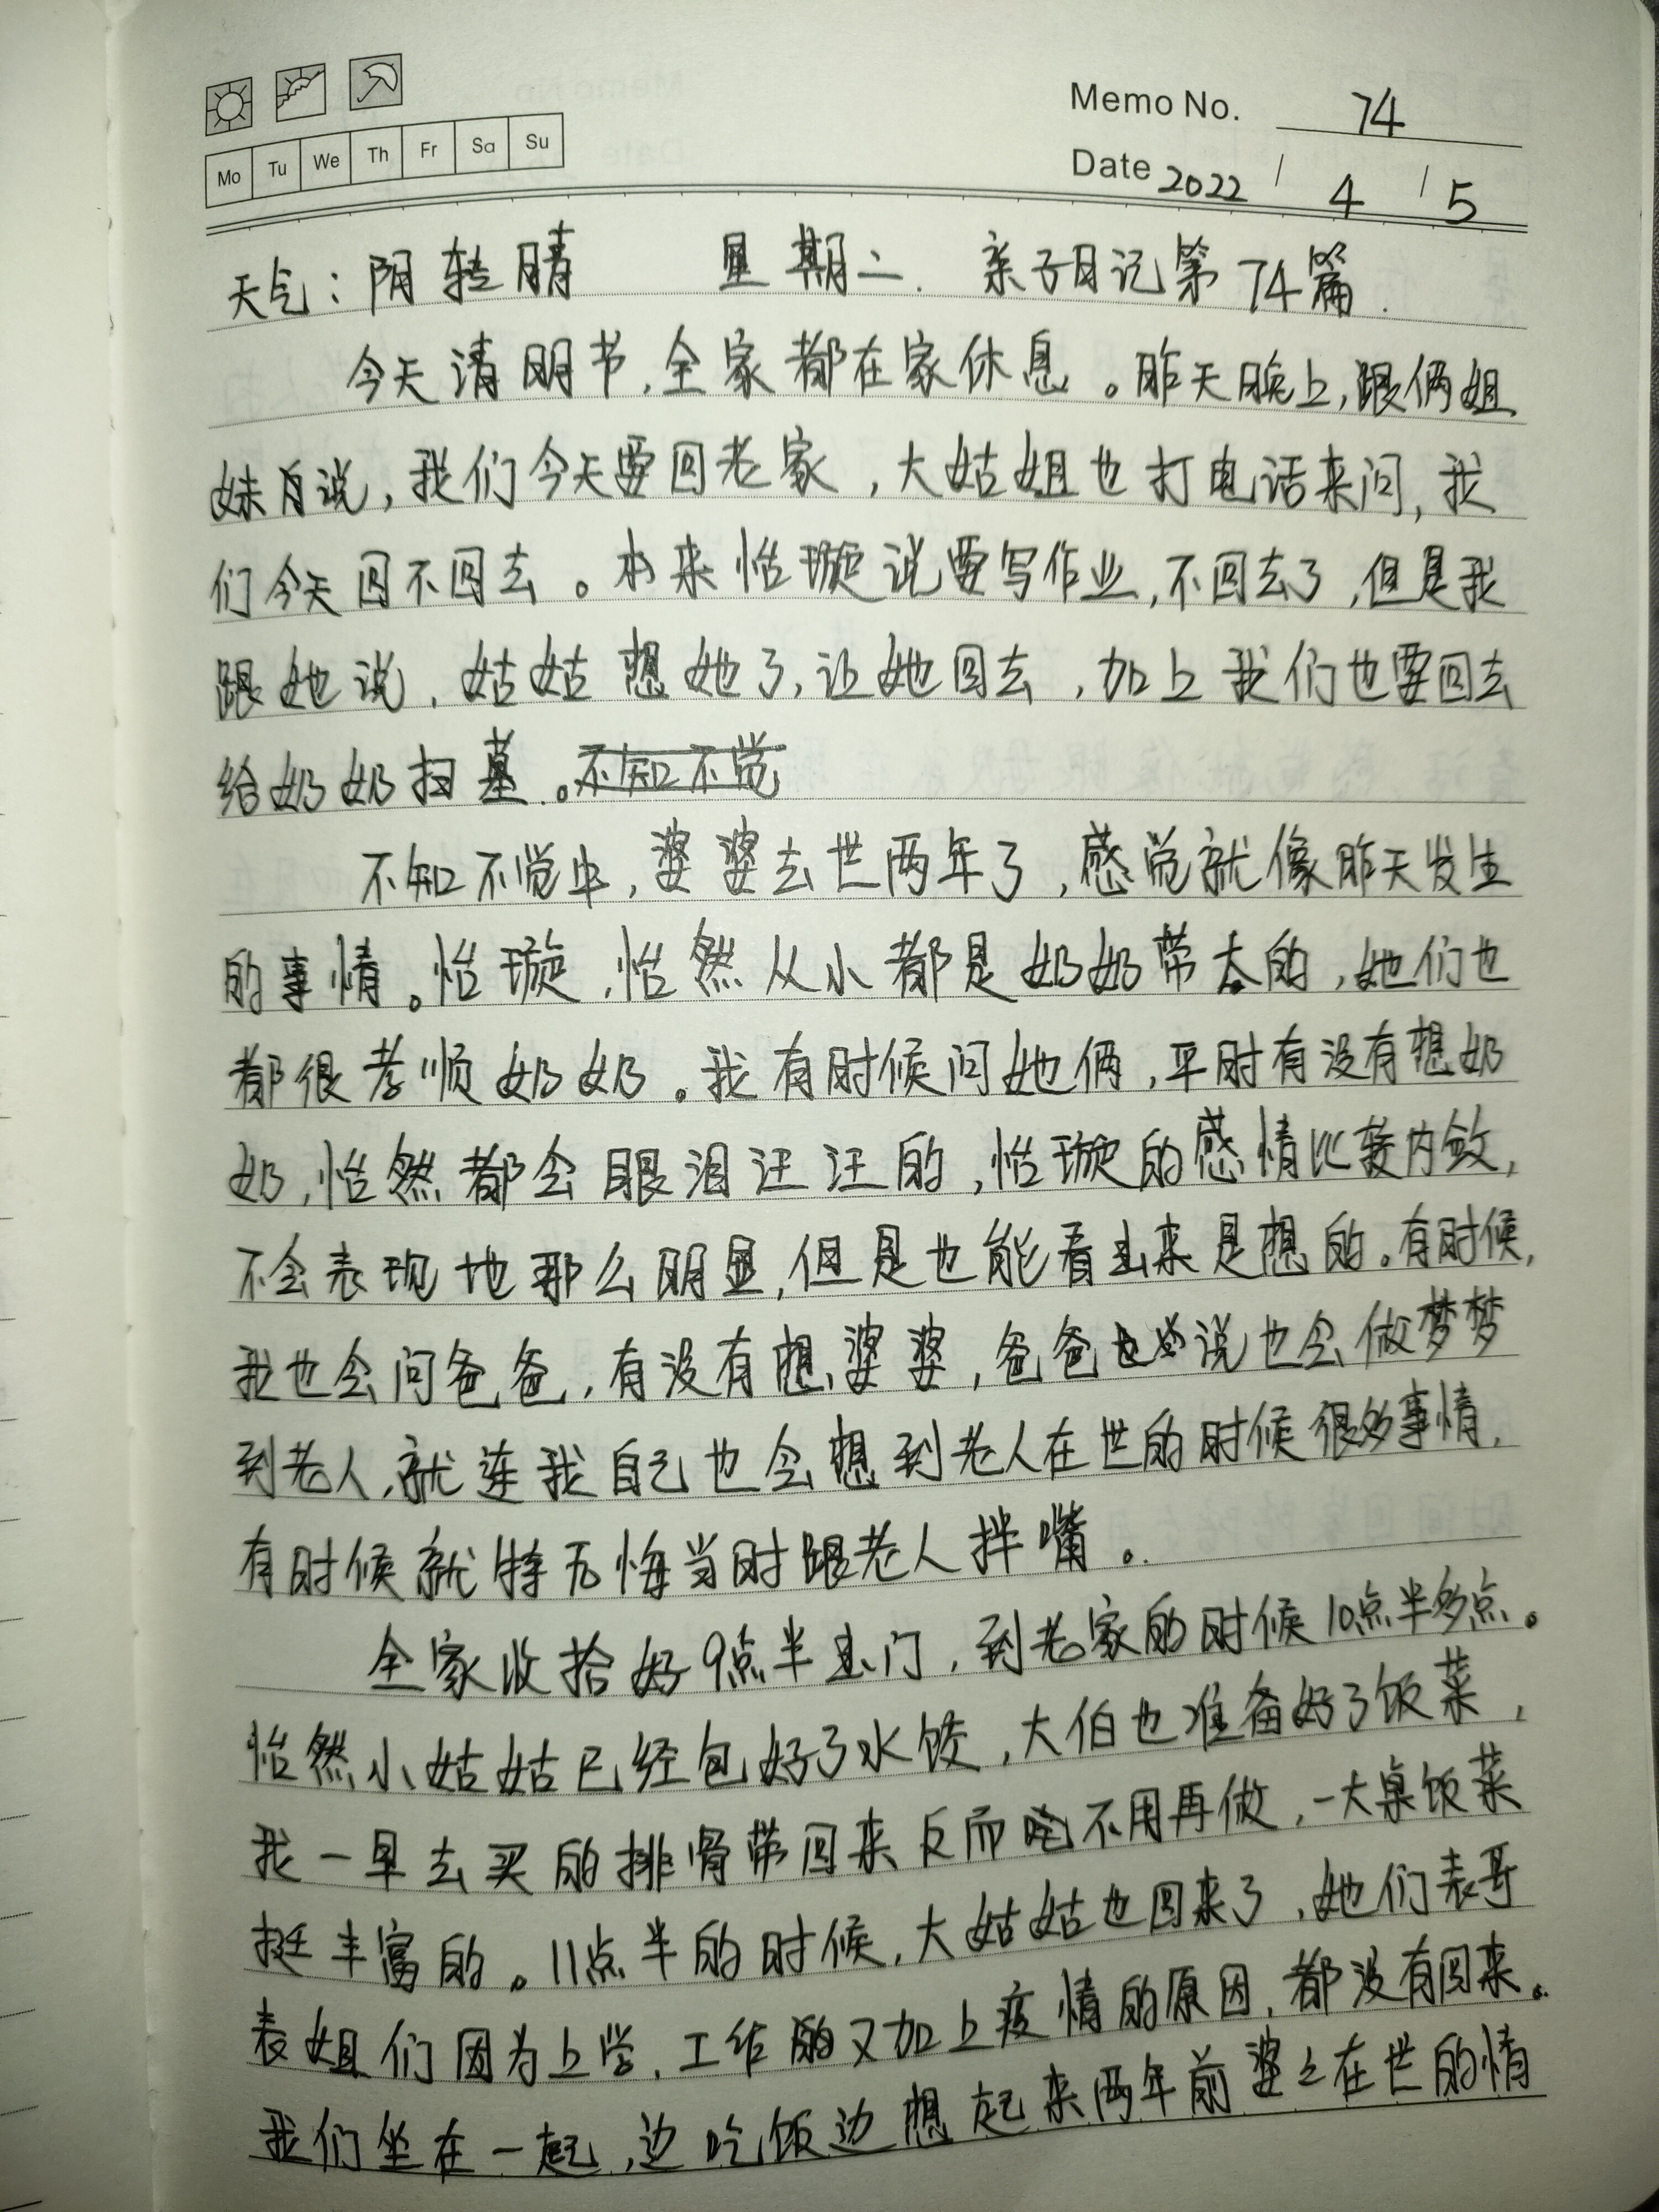 Memo No. 74
Mo Tu We Th Fr Sa Su
Date 2022 / 4 / 5
天气：阴转晴 星期二. 亲子日记第74篇.
今天清明节,全家都在家休息。昨天晚上,跟俩姐
妹月说,我们今天要回老家,大姑姐也打电话来问,我
们今天回不回去。本来怡璇说要写作业,不回去了,但是我
跟她说,姑姑想她了,让她回去,加上我们也要回去
给奶奶扫墓。不知不觉
不知不觉中,婆婆去世两年了,感觉就像昨天发生
的事情。怡璇,怡然从小都是奶奶带大的,她们也
都很孝顺奶奶。我有时候问她俩,平时有没有想奶
奶,怡然都会眼泪汪汪的,怡璇的感情比较内敛,
不会表现地那么明显,但是也能看出来是想的。有时候,
我也会问爸爸,有没有想婆婆,爸爸也说也会做梦梦
到老人,就连我自己也会想到老人在世的时候很多事情,
有时候就特后悔当时跟老人拌嘴。
全家收拾好9点半出门,到老家的时候10点半多点。
怡然小姑姑已经包好了水饺,大伯也准备好了饭菜,
我一早去买的排骨带回来反而不用再做,一大桌饭菜
挺丰富的。11点半的时候,大姑姑也回来了,她们表哥
表姐们因为上学,工作的又加上疫情的原因,都没有回来。
我们坐在一起,边吃饭边想起来两年前婆々在世的情